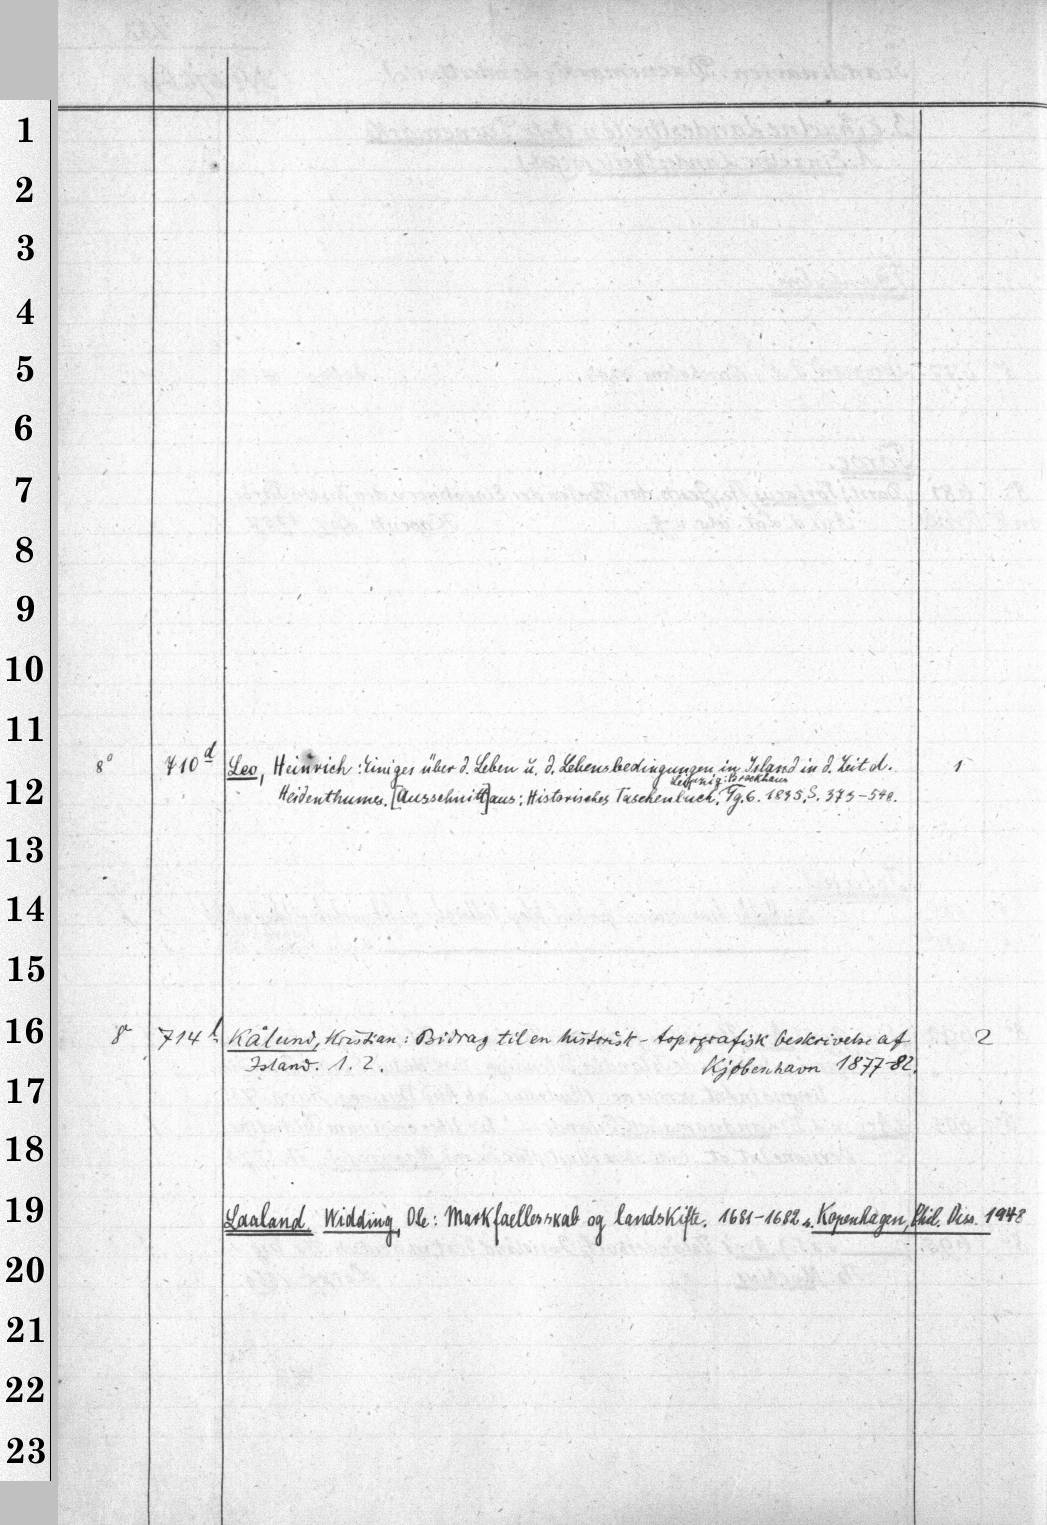 1
2
3
4
5
6
7
8
9
10
11
8° 710 d Leo, Heinrich: Einiges über d. Leben u. d. Lebensbedingungen in Island in d. Zeit d. 1
Leipzig: Brockhaus
12 Heidenthumes. [Ausschnitt] aus: Historisches Taschenbuch, Jg. 6. 1835, S. 373-548.
13
14
15
16 8° 714 Kålund, Kristian: Bidrag til en historisk-topografisk beskrivelse af 2
Island. 1. 2. Kjøbenhavn 1877-82.
17
18
19 Laaland. Widding, Ole: Markfaellesskab og landskifte. 1681-1682. Kopenhagen, Phil. Diss. 1948
20
21
22
23